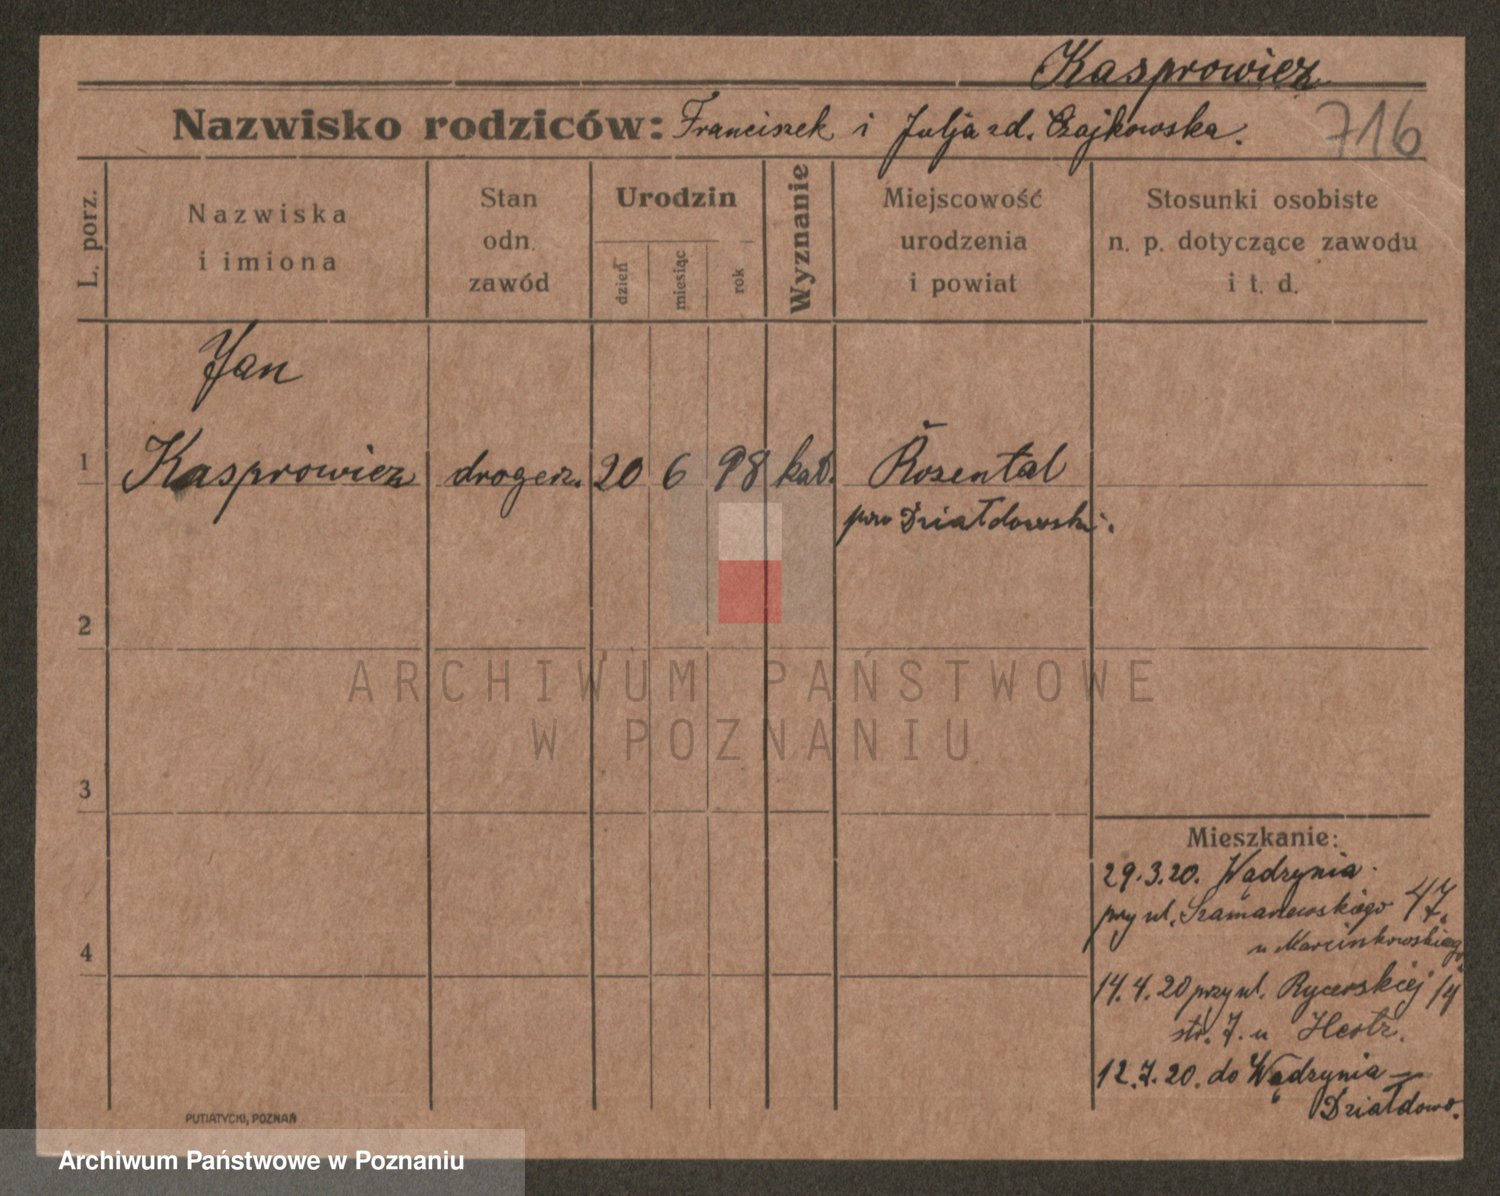 Kasprowicz
Nazwisko rodziców: Franciszek i Julja zd. Czajkowska.
716
L. porz.
Nazwiska
i imiona
Stan
odn.
zawód
Urodzin
dzień
miesiąc
rok
Wyznanie
Miejscowość
urodzenia
i powiat
Stosunki osobiste
n. p. dotyczące zawodu
i t. d.
Jan
1 Kasprowicz drogerz. 20 6 98 kat. Rozental
pow Działdowski.
2
ARCHIWUM PAŃSTWOWE
W POZNANIU
3
Mieszkanie:
29.3.20. Wądzynia
przy ul. 47.
u Marcinkowskiego
4
14.4.20 przy ul. Rycerskiej 14
str. 7. u
12.7.20. do Wądzynia –
Działdowo.
PUTIATYCKI, POZNAŃ
Archiwum Państwowe w Poznaniu